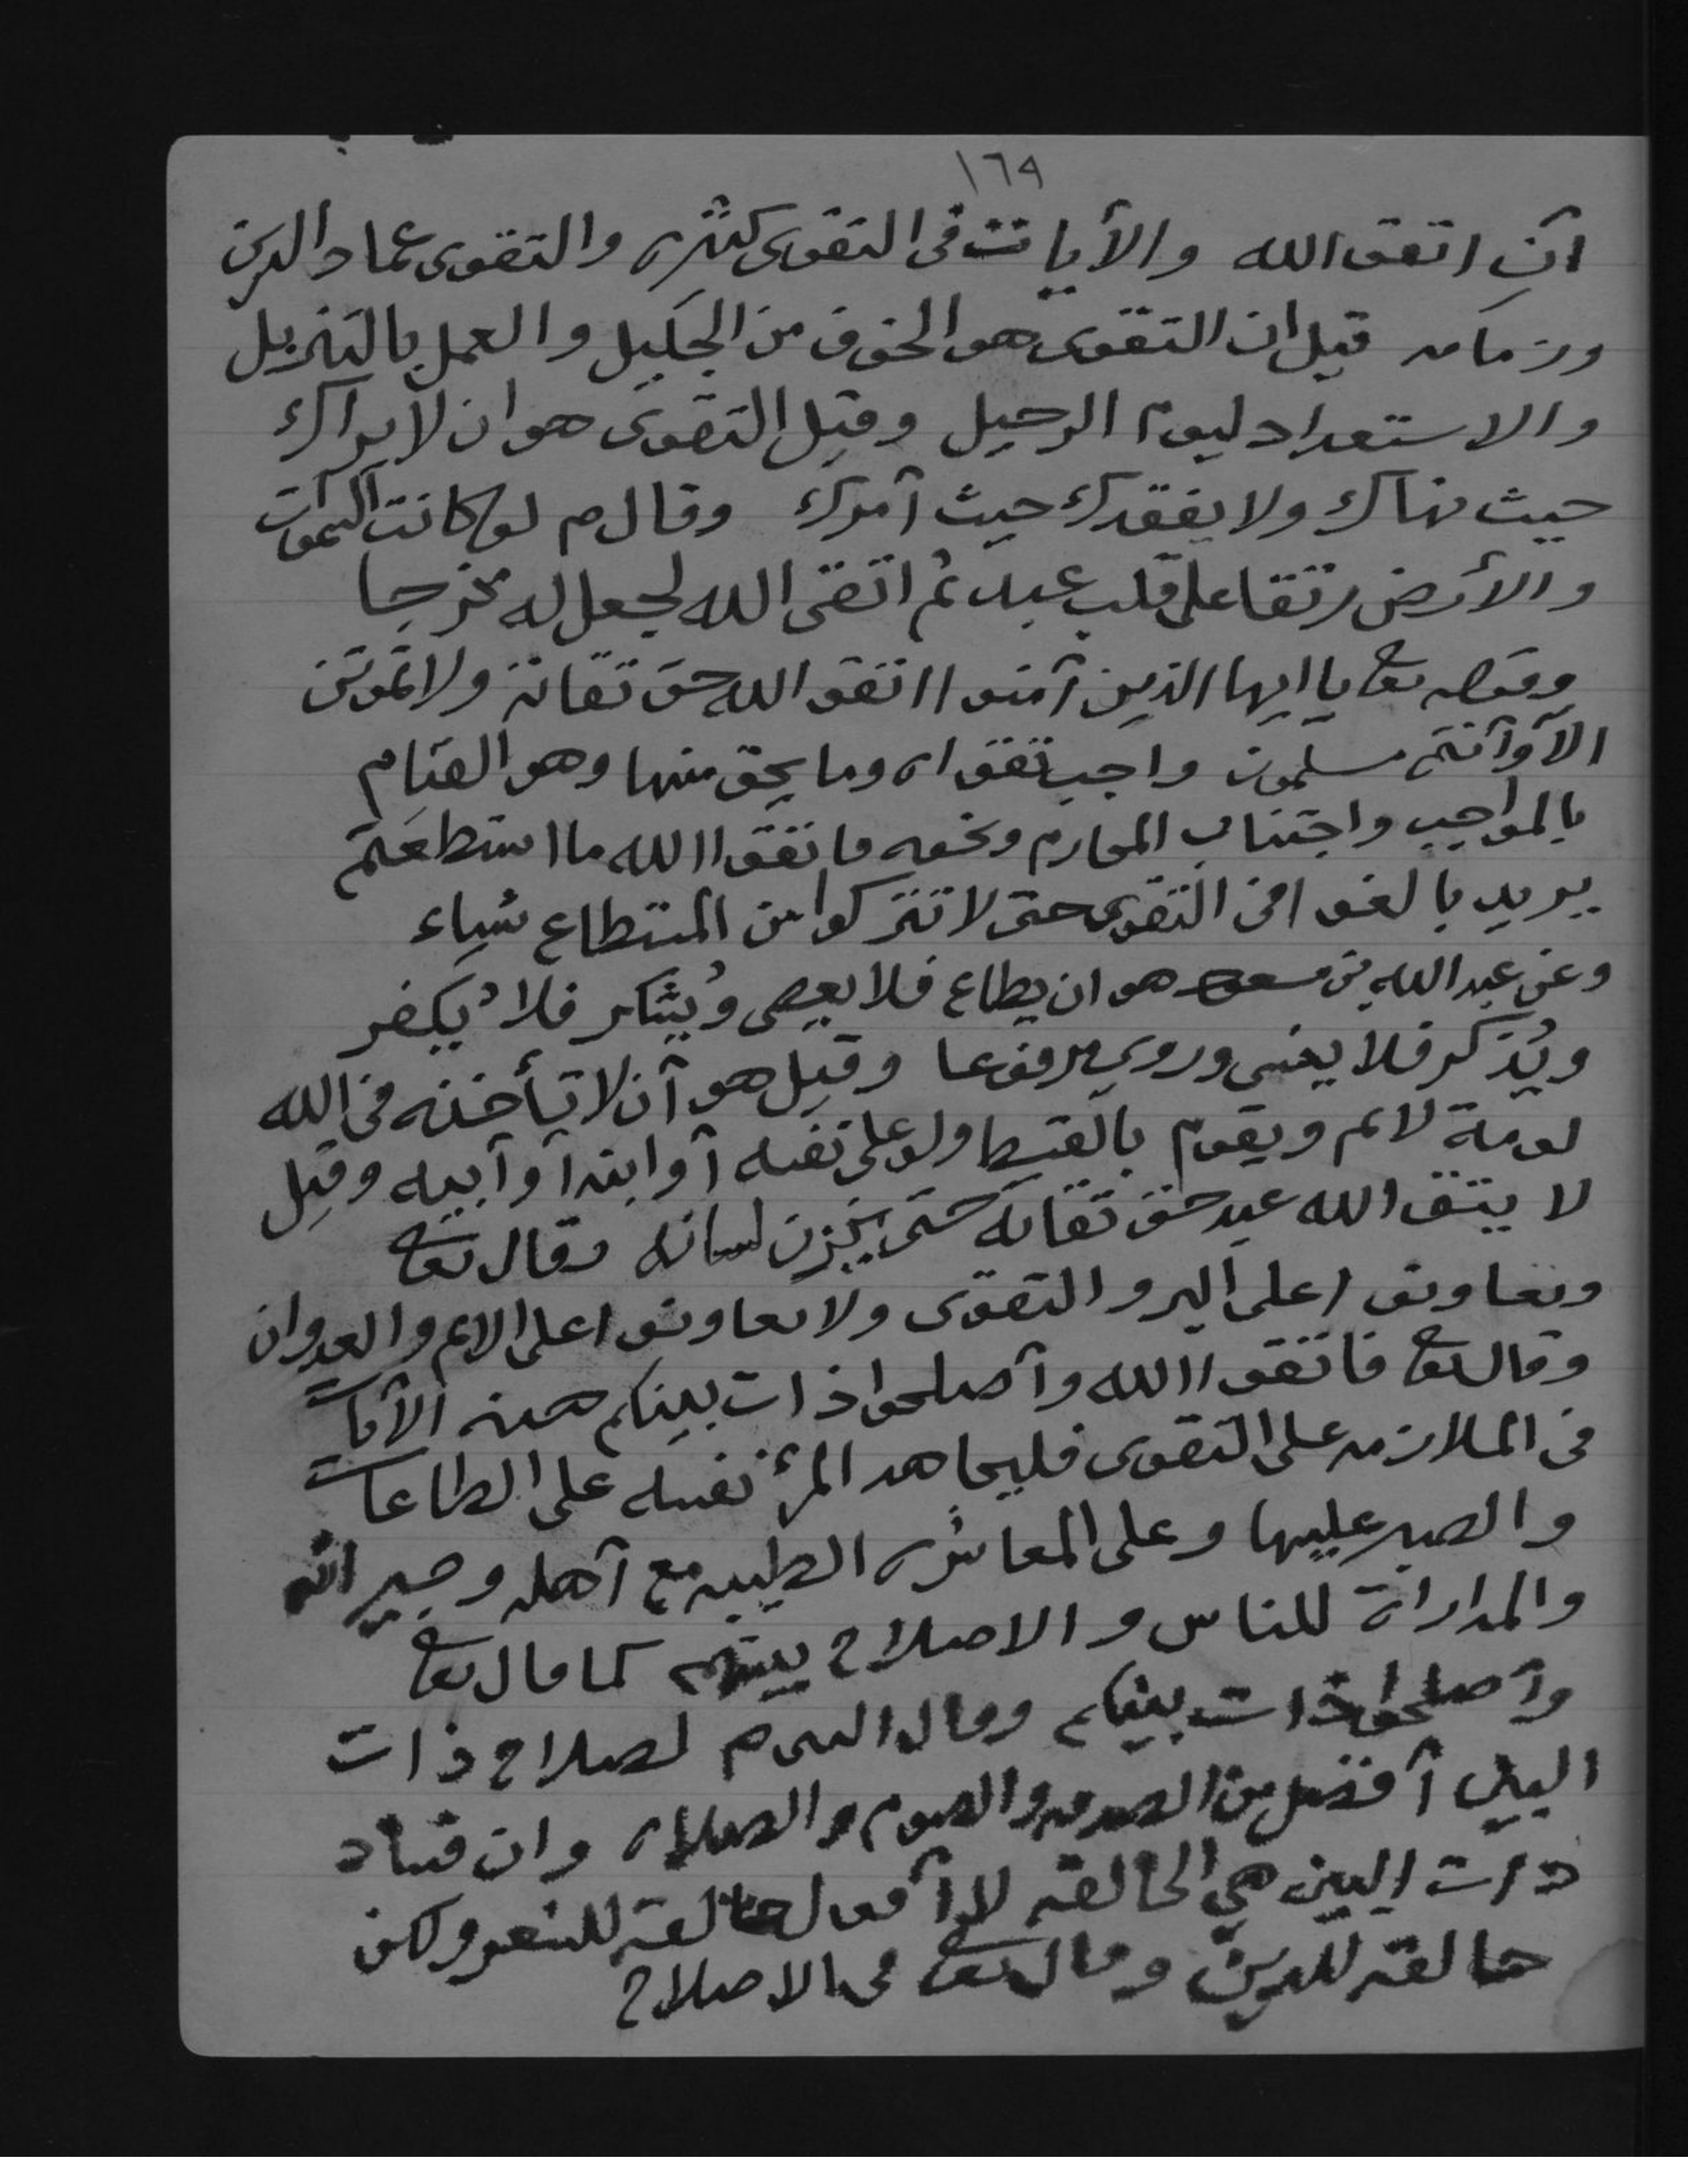 ١٦٩
آن اتقو الله والآيات فى التقوى كثيره والتقوى عماد الدين
وزمامه قيل ان التقوى هو الخوف من الجليل والعمل بالتنزيل
والاستعداد ليوم الرحيل وقيل التقوى هو ان لا يراك
حيث نهاك ولا يفقدك حيث آمرك وقال م لو كانت السموات
والأرض رتقا على قلب عبد ثم اتقى الله لجعل له مخرجا
وقوله تعا يا ايها الذين آمنوا اتقو الله حق تقاته ولا تموتن
الا وآنتم مسلمون واجب تقواه وما يحق منها وهو القيام
بالمواجب واجتناب المحارم ونحوه فاتقوا الله ما استطعتم
يريد بالغوا فى التقوى حتى لا تتركوا من المستطاع شياء
وعن عبد الله بن مسعود هو ان يطاع فلا يعصى ويُشكر فلا يُكفر
ويُذكر فلا ينسى وروي مرفوعا وقيل هو آن لا تأخذه فى الله
لومة لائم ويقوم بالقسط ولو على نفسه آو ابنه آو آبيه وقيل
لا يتق الله عبد حق تقاته حتى يخزن لسانه وقال تعا
وتعاونوا على البر والتقوى ولا تعاونوا على الاثم والعدوان
وقال تعا فاتقوا الله وآصلحوا ذات بينكم هذه الآيات
فى الملازمه على التقوى فليجاهد المرئ نفسه على الطاعات
والصبر عليها وعلى المعاشره الطيبه مع آهله وجيرانه
والمداراة للناس والاصلاح بينهم كما قال تعا
وآصلحوا ذات بينكم وقال م لصلاح ذات
البين آفضل من الصدقه والصوم والصلاه وان فساد
ذات البين هي الحالقه لا آقول حالقه للشعر ولكن
حالقه للدين وقال تعا فى الاصلاح